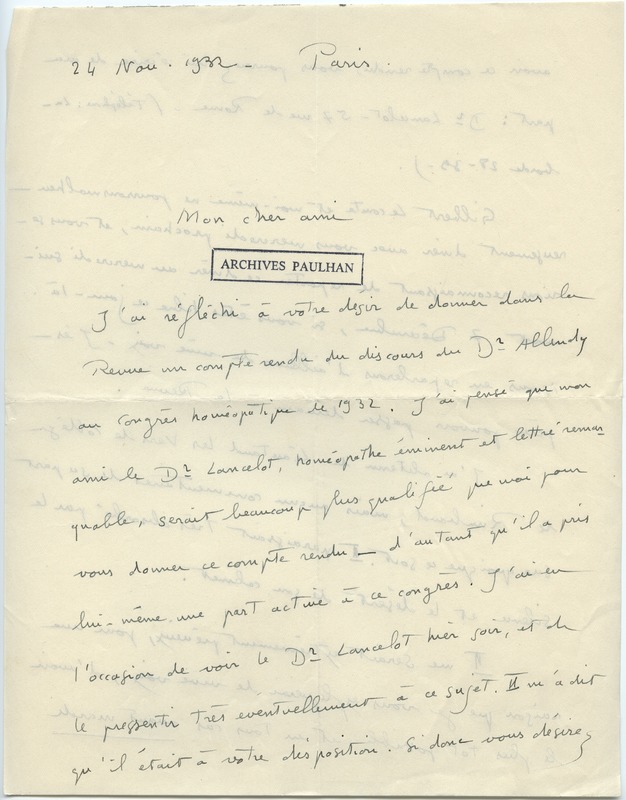 24 Nov. 1932 - Paris.
Mon cher ami
ARCHIVES PAULHAN
J'ai réfléchi à votre désir de donner dans la
Revue un compte rendu du discours du Dr Allendy
au congrès homéopatique de 1932. J'ai pensé que mon
ami le Dr Lancelot, homéopathe éminent et lettré remar-
quable, serait beaucoup plus qualifié que moi pour
vous donner ce compte rendu — d'autant qu'il a pris
lui-même une part active à ce congrès. J'ai eu
l'occasion de voir le Dr Lancelot hier soir, et de
le pressentir très éventuellement à ce sujet. Il m'a dit
qu'il était à votre disposition. Si donc vous désirez